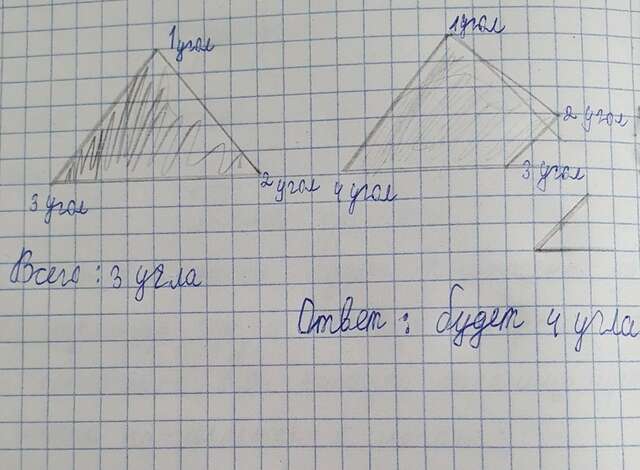 1 угол
2 угол
3 угол
1 угол
2 угол
3 угол
4 угол
Всего: 3 угла
Ответ: будет 4 угла